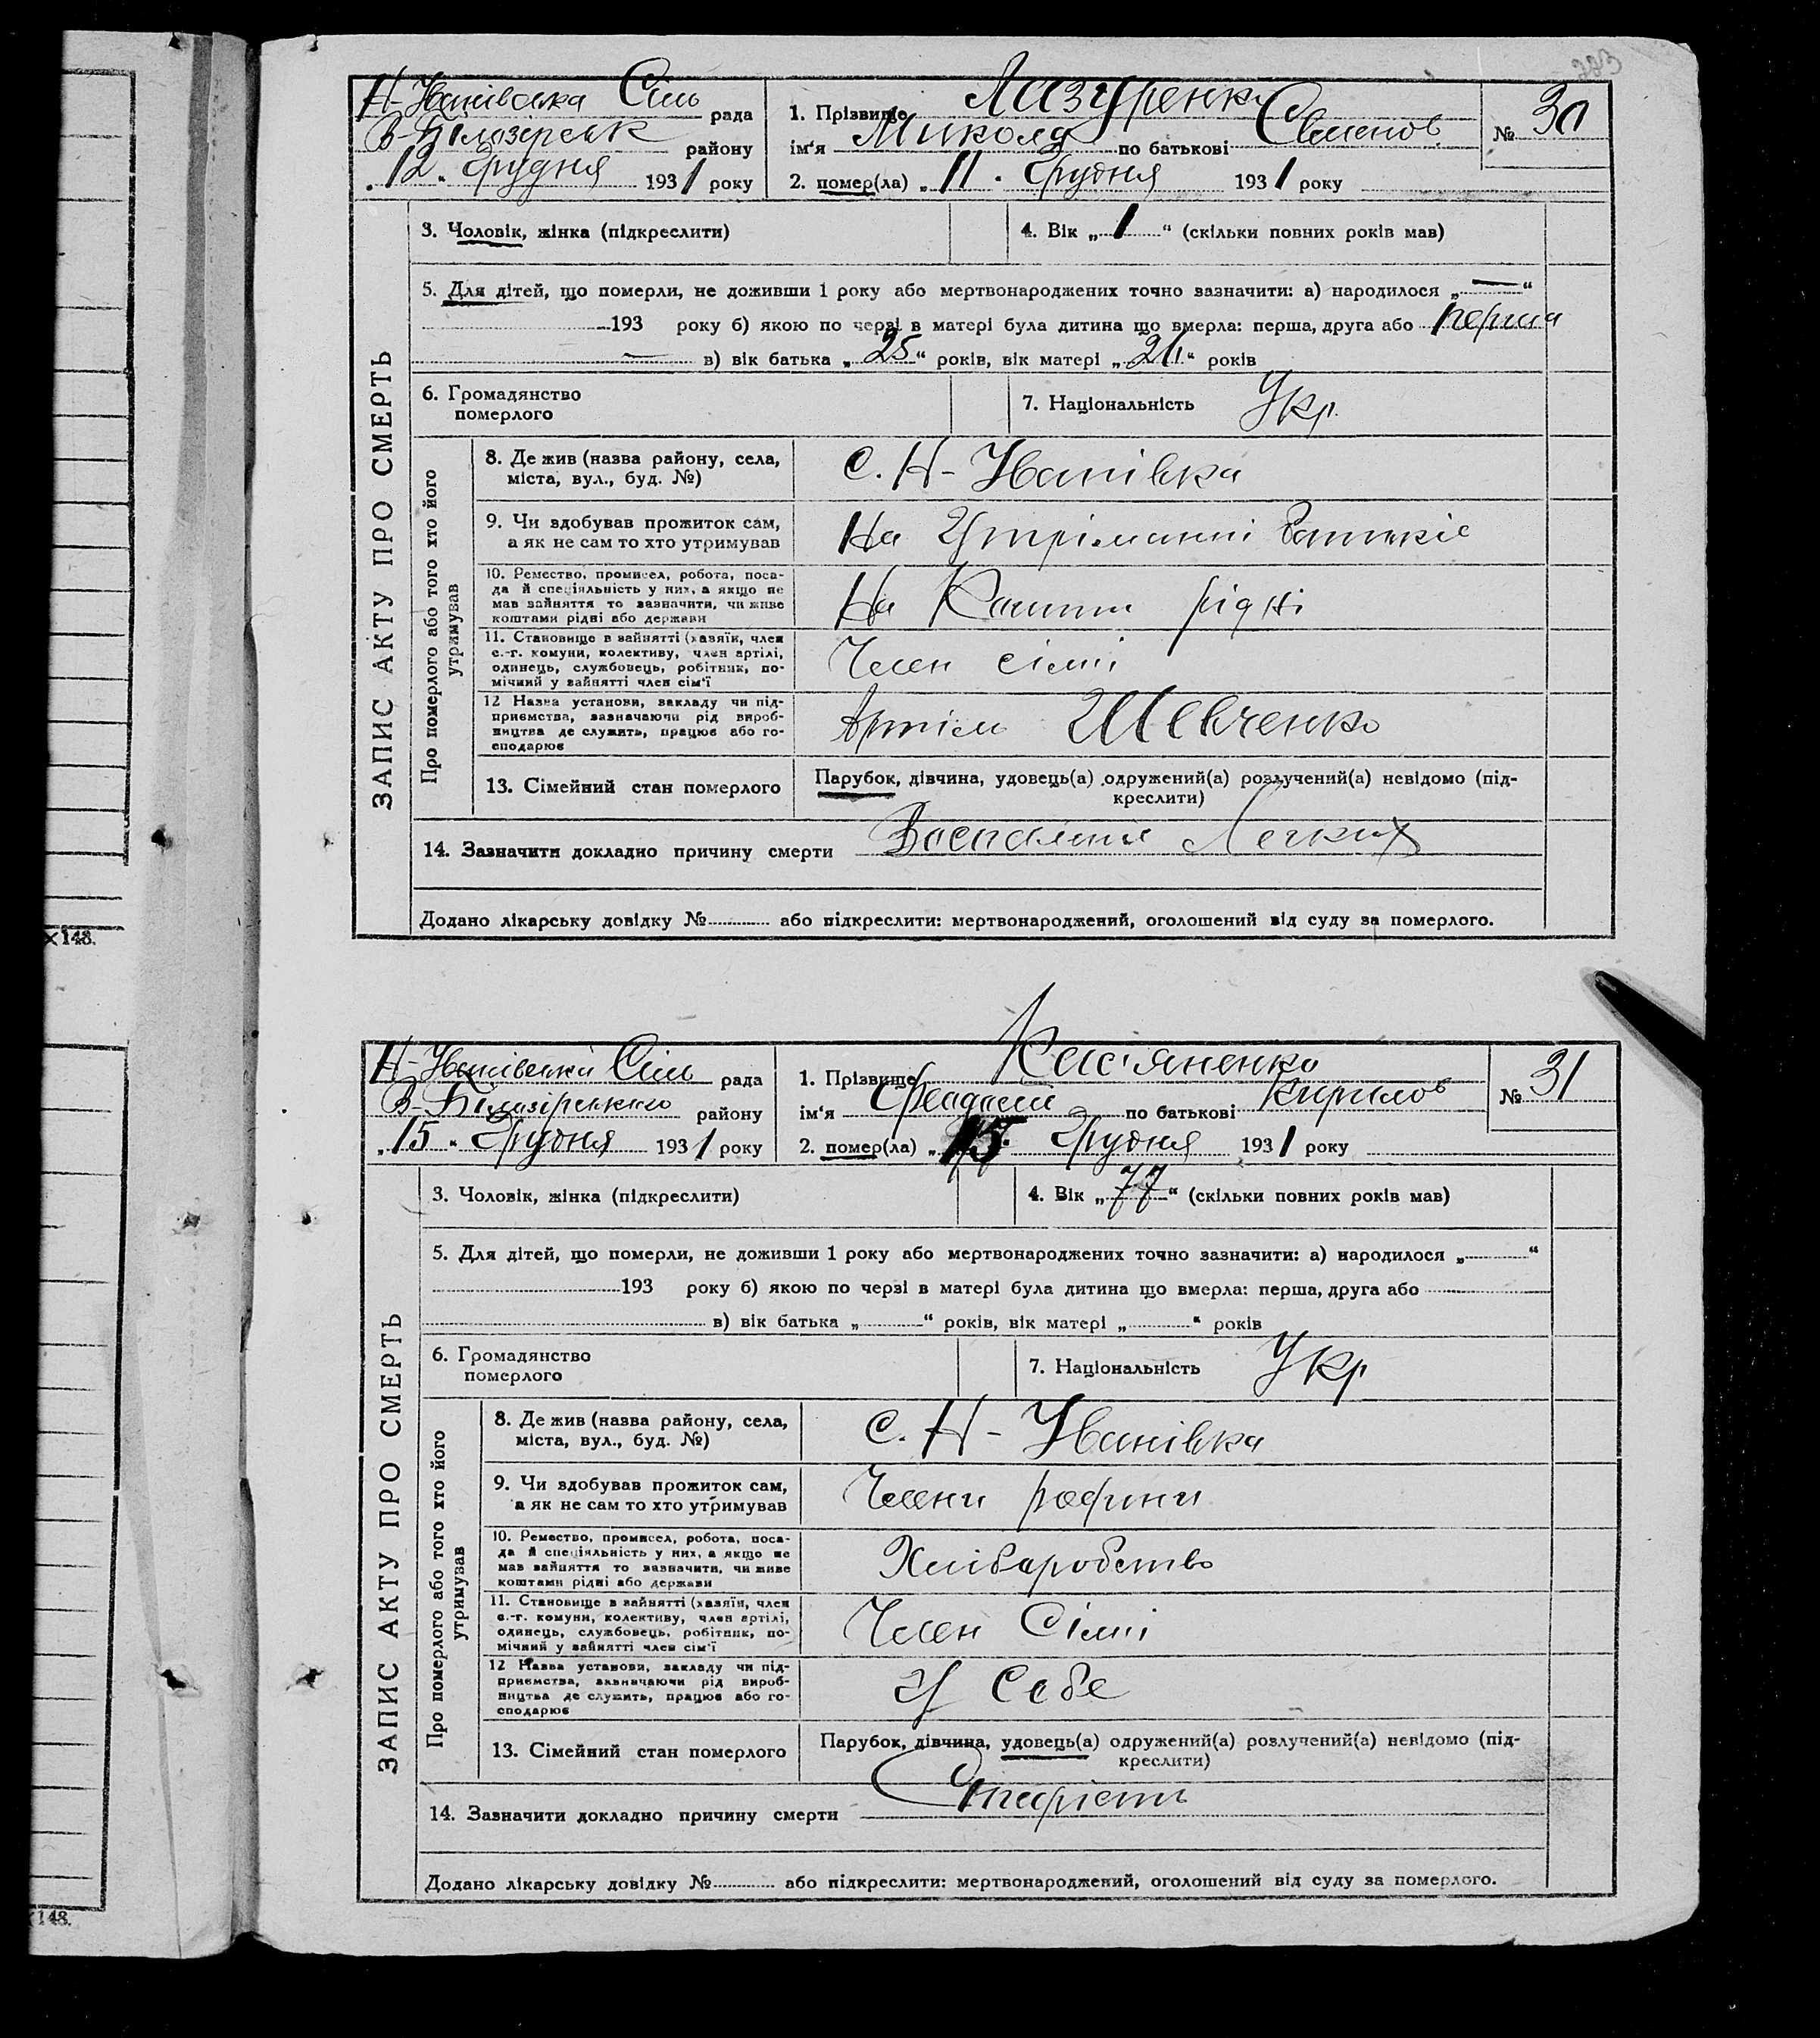 Н-Іванівська Сіль рада
В-Білозірськ району
„12“ Грудня 1931 року
1. Прізвище Лазуренко
ім'я Микола по батькові Семенов
2. помер(ла) „11“ Грудня 1931 року
№ 30
ЗАПИС АКТУ ПРО СМЕРТЬ
3. Чоловік, жінка (підкреслити)
4. Вік „1“ (скільки повних років мав)
5. Для дітей, що померли, не доживши 1 року або мертвонароджених точно зазначити: а) народилося „—“
193 року б) якою по черзі в матері була дитина що вмерла: перша, друга або перша
— в) вік батька „25“ років, вік матері „24“ років
6. Громадянство
померлого
7. Національність Укр.
Про померлого або того хто його
утримував
8. Де жив (назва району, села,
міста, вул., буд. №)
С. Н-Іванівка
9. Чи здобував прожиток сам,
а як не сам то хто утримував
На Утріманні батьків
10. Ремество, промисел, робота, поса-
да й спеціяльність у них, а якщо не
мав зайняття то зазначити, чи живе
коштами рідні або держави
На Кошти рідні
11. Становище в зайнятті (хазяїн, член
с.-г. комуни, колективу, член артілі,
одинець, службовець, робітник, по-
мічний у зайнятті член сім'ї
Член сімї
12 Назва установи, закладу чи під-
приємства, зазначаючи рід вироб-
ництва де служить, працює або го-
сподарює
Артіль Шевченко
13. Сімейний стан померлого
Парубок, дівчина, удовець(а) одружений(а) розлучений(а) невідомо (під-
креслити)
14. Зазначити докладно причину смерти Воспаления Легких
Додано лікарську довідку № або підкреслити: мертвонароджений, оголошений від суду за померлого.
✕148.
Н-Іванівський Сіль рада
В-Білозірського району
„15“ Грудня 1931 року
1. Прізвище Кас'яненко
ім'я по батькові Кирилов
2. помер(ла) „15“ Грудня 1931 року
№ 31
ЗАПИС АКТУ ПРО СМЕРТЬ
3. Чоловік, жінка (підкреслити)
4. Вік „77“ (скільки повних років мав)
5. Для дітей, що померли, не доживши 1 року або мертвонароджених точно зазначити: а) народилося „ “
193 року б) якою по черзі в матері була дитина що вмерла: перша, друга або
в) вік батька „ “ років, вік матері „ “ років
6. Громадянство
померлого
7. Національність Укр
Про померлого або того хто його
утримував
8. Де жив (назва району, села,
міста, вул., буд. №)
С. Н-Іванівка
9. Чи здобував прожиток сам,
а як не сам то хто утримував
Члени родини
10. Ремество, промисел, робота, поса-
да й спеціяльність у них, а якщо не
мав зайняття то зазначити, чи живе
коштами рідні або держави
Хліборобство
11. Становище в зайнятті (хазяїн, член
с.-г. комуни, колективу, член артілі,
одинець, службовець, робітник, по-
мічний у зайнятті член сім'ї
Член Сімї
12 Назва установи, закладу чи під-
приємства, зазначаючи рід вироб-
ництва де служить, працює або го-
сподарює
У Себе
13. Сімейний стан померлого
Парубок, дівчина, удовець(а) одружений(а) розлучений(а) невідомо (під-
креслити)
14. Зазначити докладно причину смерти Старість
Додано лікарську довідку № або підкреслити: мертвонароджений, оголошений від суду за померлого.
148.